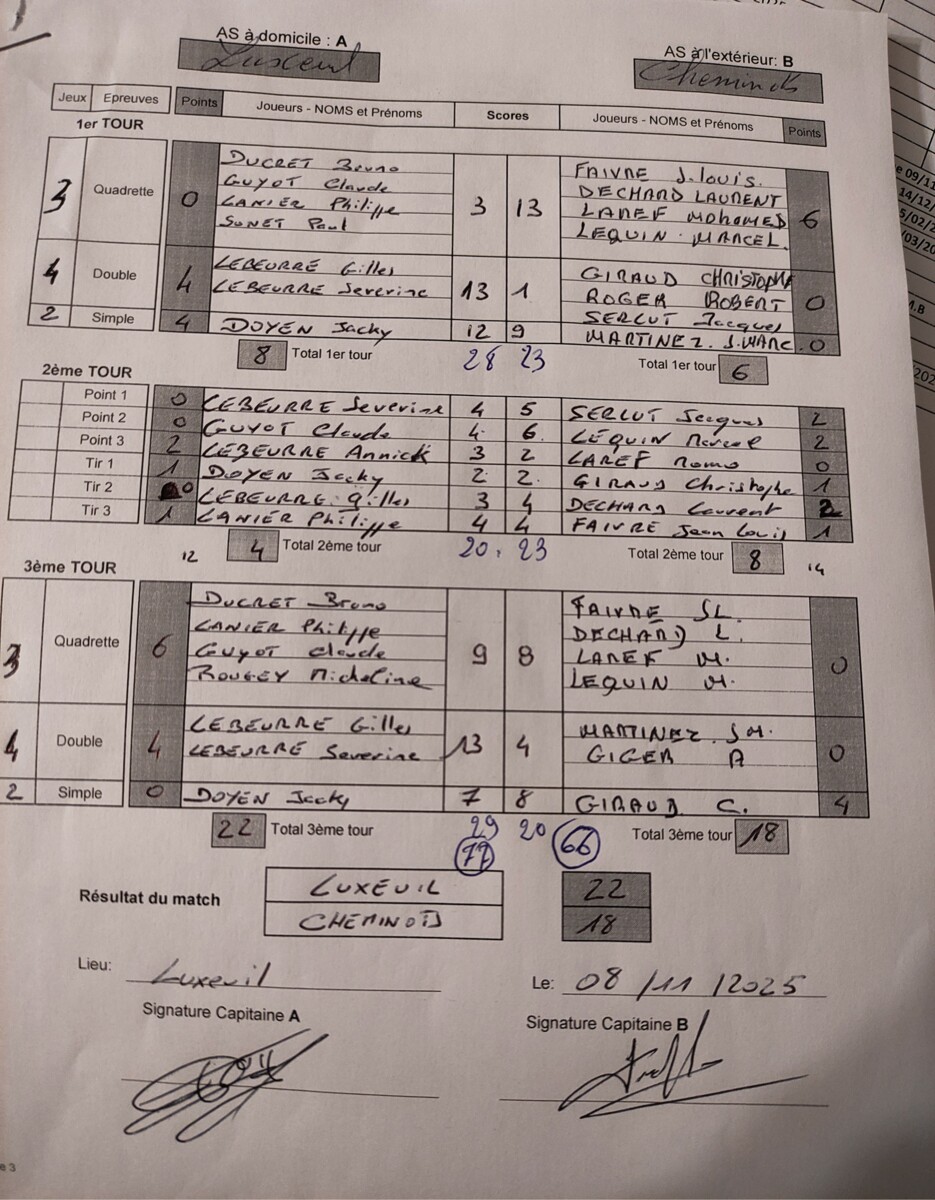 AS à domicile : A
Luxeuil
AS à l'extérieur: B
Cheminots
Jeux Epreuves Points Joueurs - NOMS et Prénoms Scores Joueurs - NOMS et Prénoms Points
1er TOUR
3 Quadrette 0 3 13 6
DUCRET Bruno
GUYOT Claude
LANIER Philippe
SUNET Paul
FAIVRE J. louis.
DECHARD LAURENT
LAREF MOHOMED
LEQUIN . MARCEL.
4 Double 4 13 1 0
LEBEURRE Gilles
LEBEURRE Severine
GIRAUD CHRISTOPHE
ROGER ROBERT
2 Simple 4 DOYEN Jacky 12 9 0
SERCUT Jacques
MARTINEZ. J.MARC.
8 Total 1er tour 28 23 Total 1er tour 6
2ème TOUR
Point 1 0 LEBEURRE Severine 4 5 SERCUT Jacques 2
Point 2 0 GUYOT Claude 4 6 LÉQUIN Marcel 2
Point 3 2 LEBEURRE Annick 3 2 LAREF Momo 0
Tir 1 1 DOYEN Jacky 2 2 GIRAUD Christophe 1
Tir 2 0 LEBEURRE Gilles 3 4 DECHARD Laurent 2
Tir 3 1 LANIER Philippe 4 4 FAIVRE Jean Louis 1
12 4 Total 2ème tour 20 23 Total 2ème tour 8 14
3ème TOUR
3 Quadrette 6 9 8 0
DUCRET Bruno
LANIER Philippe
GUYOT Claude
ROUGEY Micheline
FAIVRE JL.
DECHARD L.
LAREF M.
LEQUIN M.
4 Double 4 13 4 0
LEBEURRE Gilles
LEBEURRE Severine
MARTINEZ JM.
GIGER A
2 Simple 0 DOYEN Jacky 7 8 GIRAUD C. 4
22 Total 3ème tour 29 20 Total 3ème tour 18
77 66
Résultat du match
LUXEUIL 22
CHEMINOTS 18
Lieu: Luxeuil
Le: 08 /11 /2025
Signature Capitaine A
Signature Capitaine B